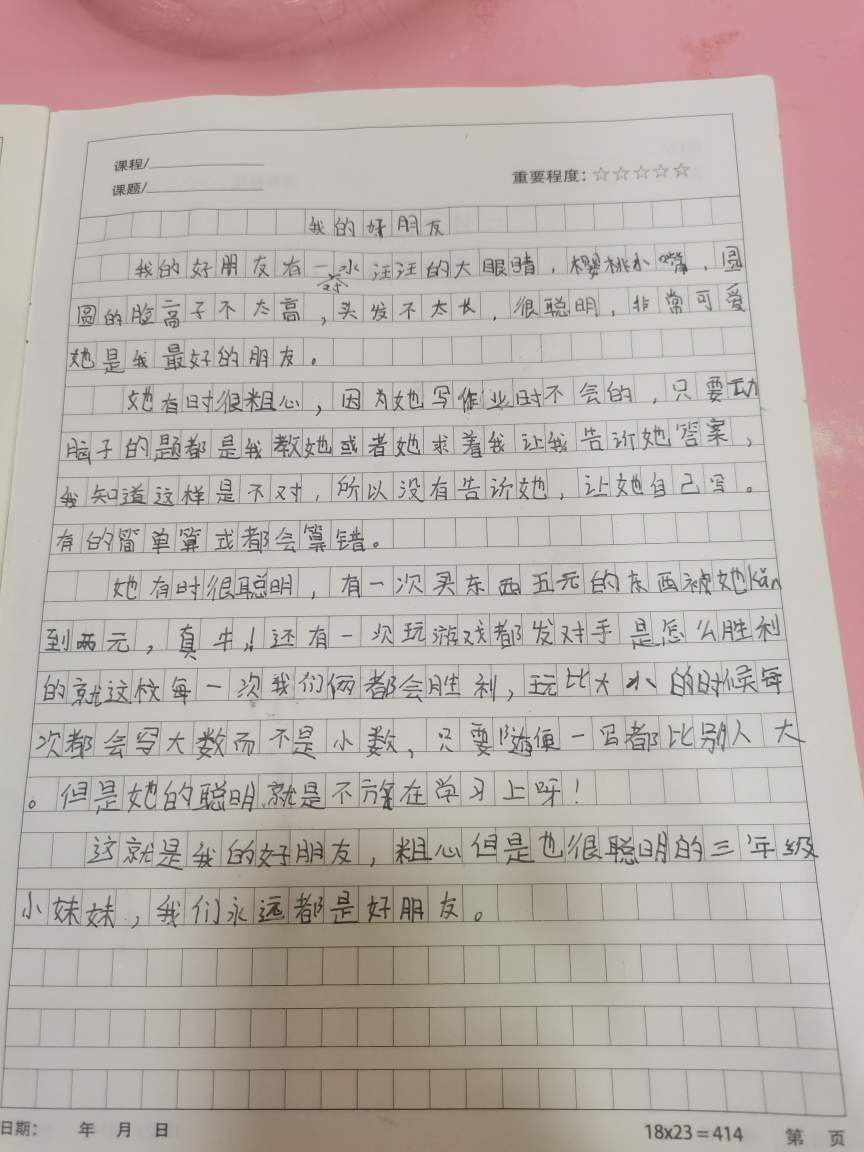 课程/
课题/
重要程度：☆☆☆☆☆
我的好朋友
我的好朋友有一双水汪汪的大眼睛，樱桃小嘴，圆
圆的脸高子不太高，头发不太长，很聪明，非常可爱
她是我最好的朋友。
她有时很粗心，因为她写作业时不会的，只要动
脑子的题都是我教她或者她求着我让我告诉她答案，
我知道这样是不对，所以没有告诉她，让她自己写。
有的简单算式都会算错。
她有时很聪明，有一次买东西五元的东西被她kǎn
到两元，真牛！还有一次玩游戏都发对手是怎么胜利
的就这样每一次我们俩都会胜利，玩比大小的时候每
次都会写大数而不是小数，只要随便一写都比别人大
。但是她的聪明就是不放在学习上呀！
这就是我的好朋友，粗心但是也很聪明的三年级
小妹妹，我们永远都是好朋友。
日期： 年 月 日
18x23=414 第 页